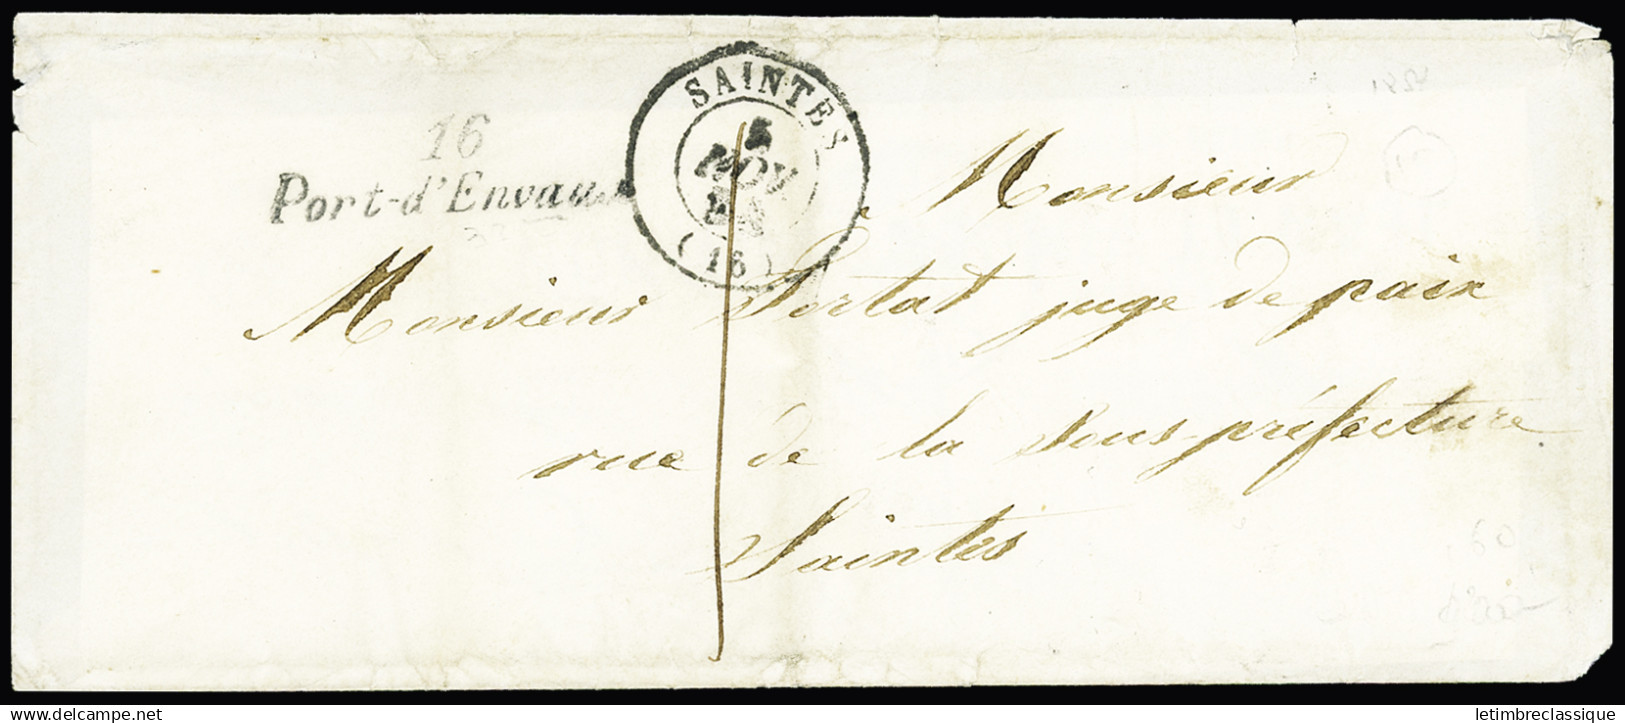 SAINTES
5
NOV
(16)
16
Port-d'Envaux
Monsieur
Monsieur Portat juge de paix
rue de la sous-préfecture
Saintes
60
www.delcampe.net
letimbreclassique